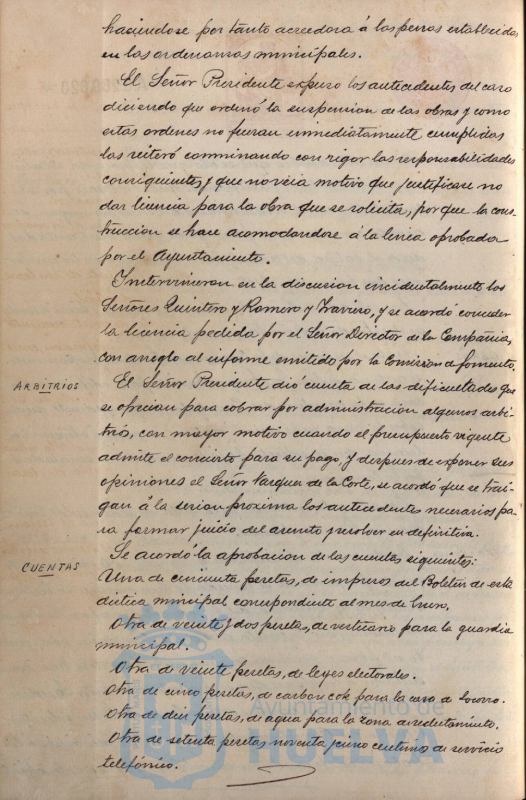 haciendose por tanto acreedora á las penas establecidas
en las ordenanzas municipales.
El Señor Presidente expuso los antecedentes del caso
diciendo que ordenó la suspension de las obras y como
estas ordenes no fueran inmediatamente cumplidas
las reiteró conminando con rigor las responsabilidades
consiguientes, y que no veia motivo que justificase no
dar licencia para la obra que se solicita, por que la cons-
truccion se hace acomodandose á la linea aprobada
por el Ayuntamiento.
Intervinieron en la discusion incidentalmente los
Señores Quintero y Romero y Traviso, y se acordó conceder
la licencia pedida por el Señor Director de la Compañia,
con arreglo al informe emitido por la Comision de fomento.
ARBITRIOS
El Señor Presidente dió cuenta de las dificultades que
se ofrecian para cobrar por administracion algunos arbi-
trios, con mayor motivo cuando el presupuesto vigente
admite el concierto para su pago, y despues de exponer sus
opiniones el Señor Vazquez de la Corte, se acordó que se trai-
gan á la sesion proxima los antecedentes necesarios pa-
ra formar juicio del asunto y resolver en definitiva.
CUENTAS
Se acordó la aprobacion de las cuentas siguientes:
Una de cincuenta pesetas, de impresos del Boletin de esta-
distica municipal correspondiente al mes de Enero.
Otra de veinte y dos pesetas, de vestuario para la guardia
municipal.
Otra de veinte pesetas, de leyes electorales.
Otra de cinco pesetas, de carbon cok para la casa de socorro.
Otra de diez pesetas, de agua para la zona arrendamiento.
Otra de setenta pesetas noventa y cinco centimos de servicio
telefónico.
Ayuntamiento de
HUELVA